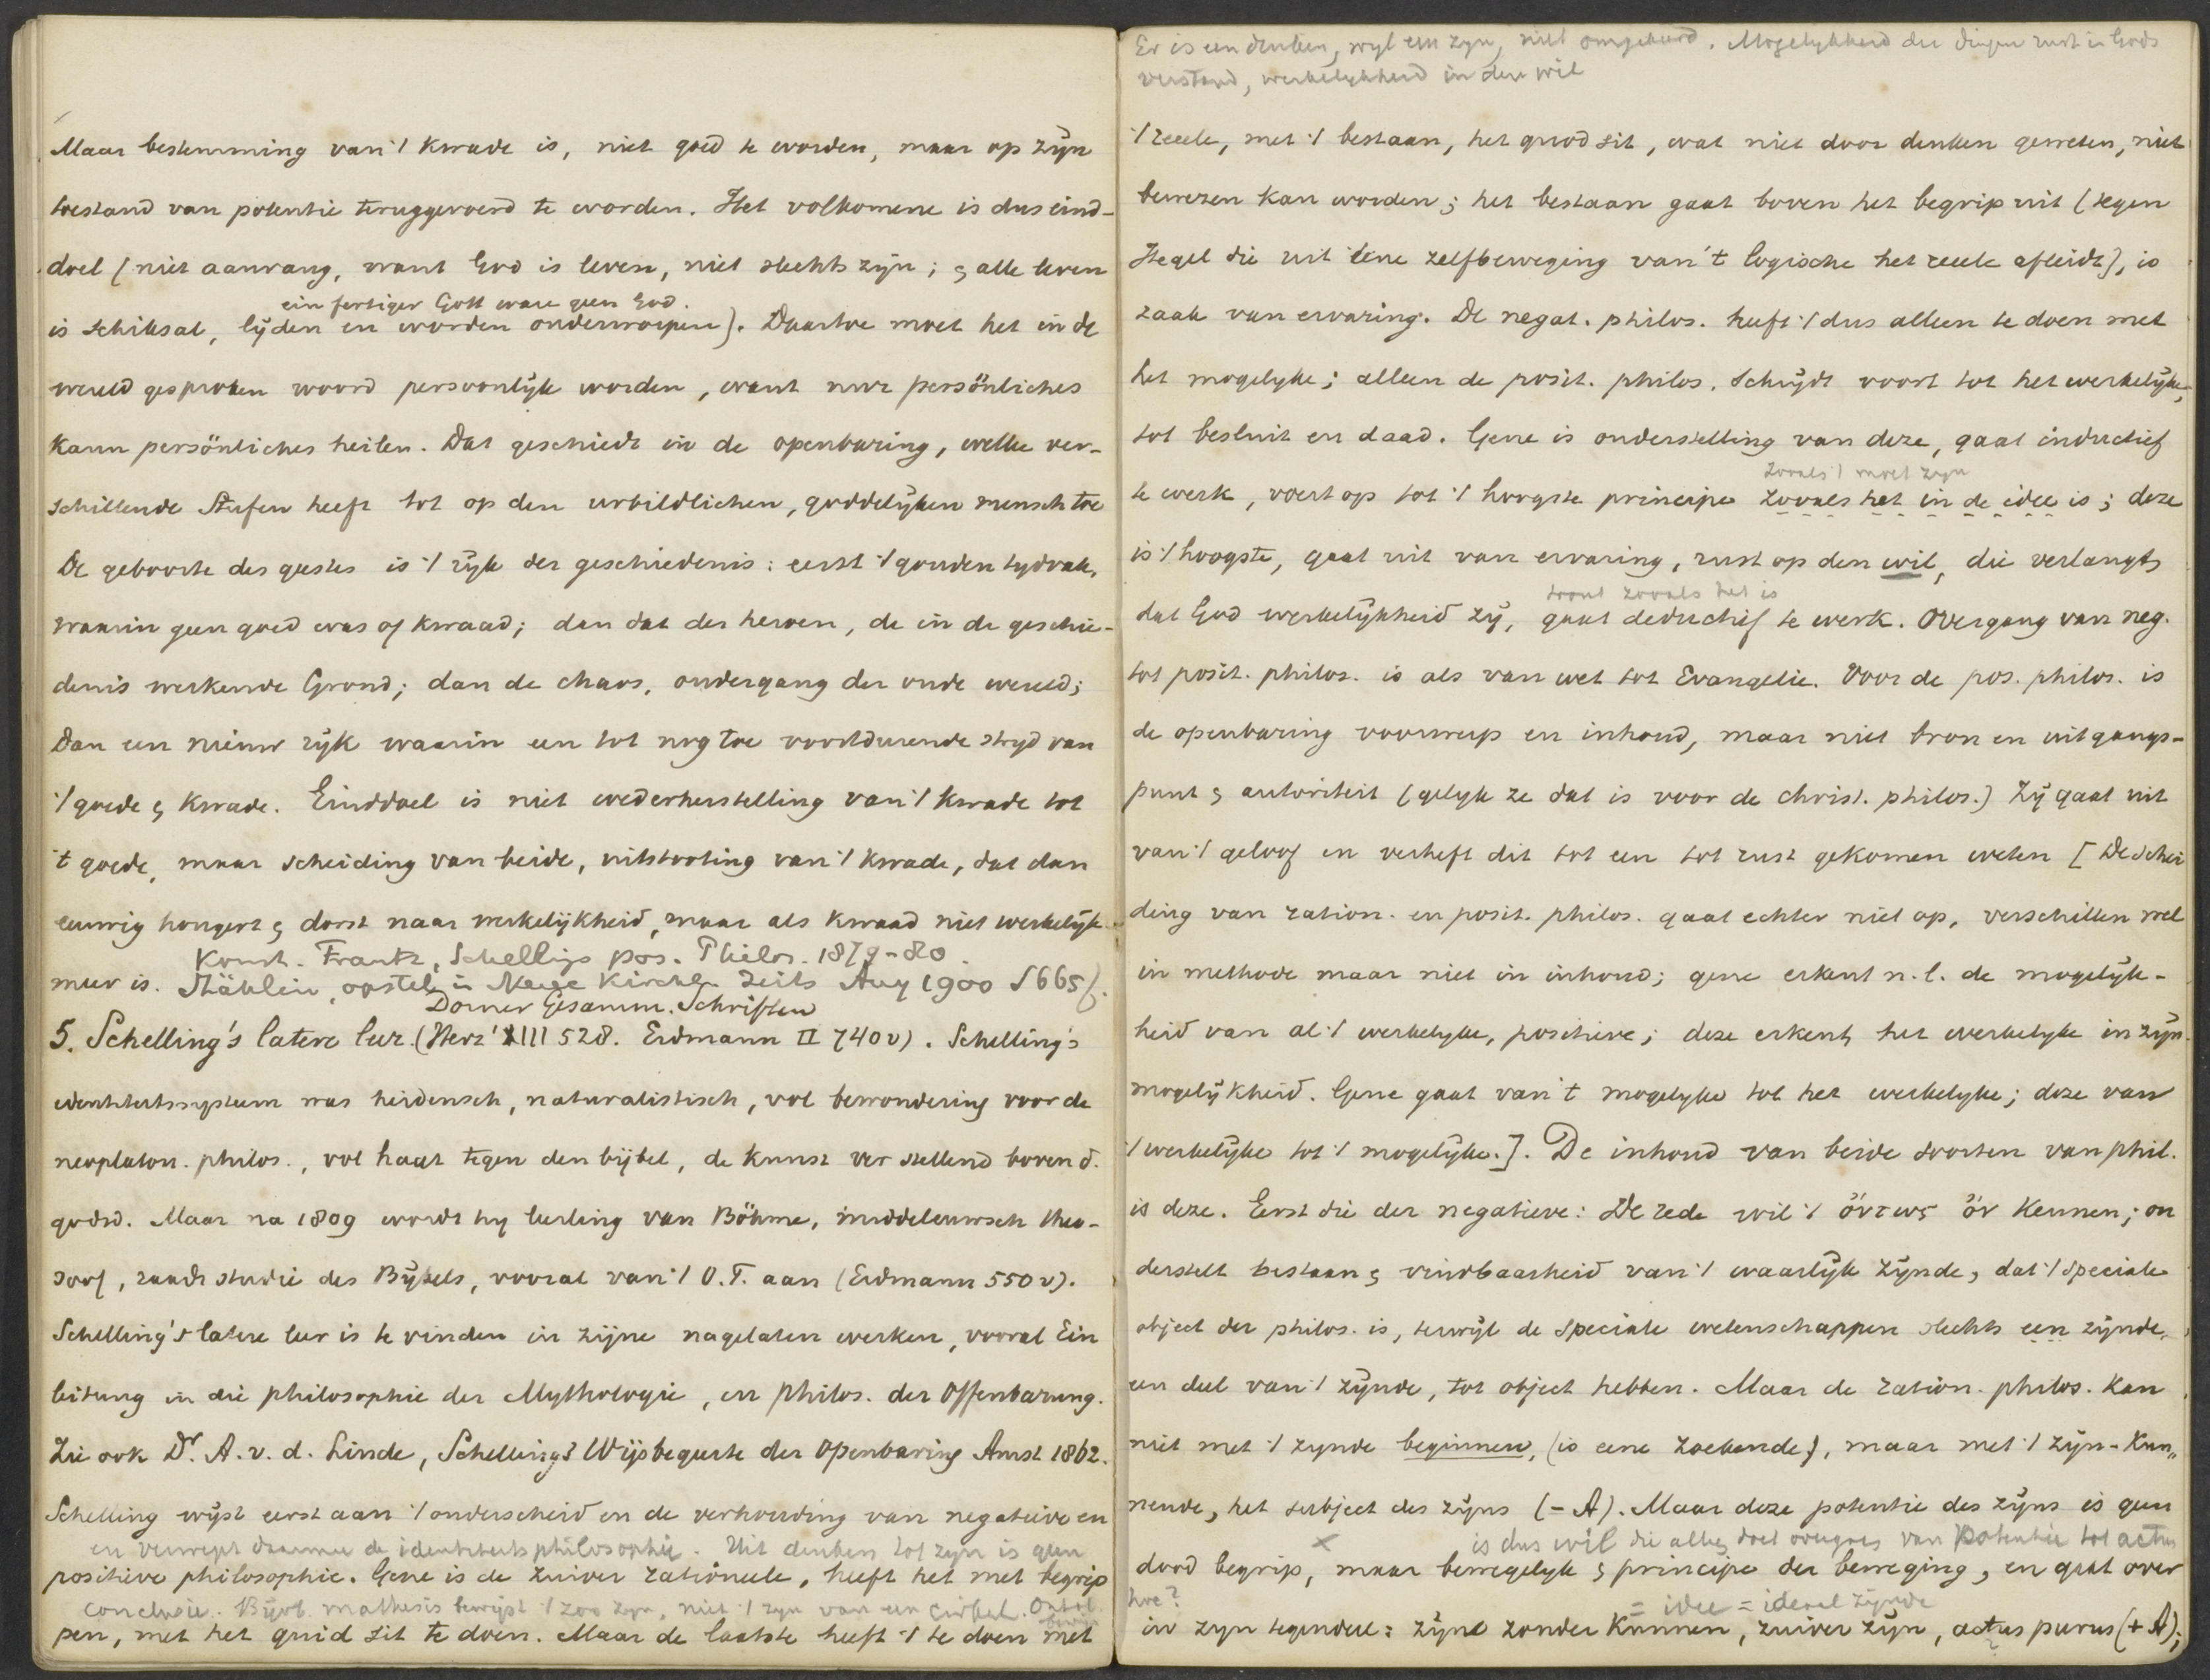 Maar bestemming van 't kwade is, niet goed te worden, maar op zijn
toestand van potentie teruggevoerd te worden. Het volkomene is dus eind-
doel (niet aanvang, want God is leven, niet slechts zijn; & alle leven
ein fertiger Gott ware geen God.
is schiksal, lijden en worden onderworpen). Daartoe moet het in de
wereld gesproken woord persoonlijk worden, want nur persönliches
kann persönliches heilen. Dat geschiedt in de openbaring, welke ver-
schillende Stufen heeft tot op den urbildlichen, goddelijken mensch toe
De geboorte des geestes is 't rijk der geschiedenis: eerst 't gouden tydvak,
waarin geen goed was of kwaad; dan dat der heroen, de in de geschie-
denis werkende Grond; dan de chaos, ondergang der oude wereld;
Dan een nieuw rijk waarin een tot nog toe voortdurende stryd van
't goede & kwade. Einddoel is niet wederherstelling van 't kwade tot
't goede, maar scheiding van beide, uitstooting van 't kwade, dat dan
eeuwig hongert & dorst naar werkelijkheid, maar als kwaad niet werkelijk
Konst. Frantz, Schellings pos. Philos. 1879-80.
meer is. Stählin, opstel in Neue Kirchl. Zeits Aug 1900 S 665 f.
Dorner Gesamm. Schriften
5. Schelling's latere leer. (Herz' XIII 528. Erdmann II 740 v). Schelling's
identiteitssysteem was heidensch, naturalistisch, vol bewondering voor de
neoplaton. philos., vol haat tegen den bijbel, de kunst ver stellend boven d.
godsd. Maar na 1809 wordt hy leerling van Böhme, middeleeuwsch theo-
soof, raadt studie des Bijbels, vooral van 't O.T. aan (Erdmann 550 v).
Schelling's latere leer is te vinden in zijne nagelaten werken, vooral Ein
leitung in die philosophie der Mythologie, en philos. der Offenbarung.
Zie ook Dr. A. v. d. Linde, Schelling's Wijsbegeerte der Openbaring Amst 1862.
Schelling wijst eerst aan 't onderscheid en de verhouding van negatieve en
en verwerpt daarmee de identiteitsphilosophie. Uit denken tot zyn is geen
positieve philosophie. Gene is de zuiver rationeele, heeft het met begrip
conclusie. Bijvb. mathesis bewijst 't zoo zyn, niet 't zyn van een cirkel. Ontol. bewijs
pen, met het quid sit te doen. Maar de laatste heeft 't te doen met
Er is een denken, wyl een zyn, niet omgekeerd. Mogelykheid der dingen rust in Gods
verstand, werkelykheid in den wil
't reeele, met 't bestaan, het quod sit, wat niet door denken geweten, niet
bewezen kan worden; het bestaan gaat boven het begrip uit (tegen
Hegel die uit eene zelfbeweging van 't logische het reeele afleidt), is
zaak van ervaring. De negat. philos. heeft 't dus alleen te doen met
het mogelyke; alleen de posit. philos. schrijdt voort tot het werkelijke,
tot besluit en daad. Gene is onderstelling van deze, gaat inductief
zooals 't moet zyn
te werk, voert op tot 't hoogste principe zooals het in de idee is; deze
is 't hoogste, gaat uit van ervaring, rust op den wil, die verlangt,
zooals het is
dat God werkelijkheid zij, gaat deductief te werk. Overgang van neg.
tot posit. philos. is als van wet tot Evangelie. Voor de pos. philos. is
de openbaring voorwerp en inhoud, maar niet bron en uitgangs-
punt & autoriteit (gelyk ze dat is voor de christ. philos.) Zij gaat uit
van 't geloof en verheft dit tot een tot rust gekomen weten [De schei
ding van ration. en posit. philos. gaat echter niet op, verschillen wel
in methode maar niet in inhoud; gene erkent n.l. de mogelijk-
heid van al 't werkelyke, positieve; deze erkent het werkelyke in zijn
mogelijkheid. Gene gaat van 't mogelyke tot het werkelyke; deze van
't werkelijke tot 't mogelijke.]. De inhoud van beide soorten van phil.
is deze. Eerst die der negatieve: De rede wil 't ὄντως ὄν kennen; on
derstelt bestaan & vindbaarheid van 't waarlijk zijnde, dat 't speciale
object der philos. is, terwijl de speciale wetenschappen slechts een zijnde,
een deel van 't zijnde, tot object hebben. Maar de ration. philos. kan
niet met 't zynde beginnen, (is eene zoekende), maar met 't zijn-kun„
nende, het subject des zijns (- A). Maar deze potentie des zijns is geen
is dus wil die alles doet overgaan van potentie tot actus
dood begrip, maar bewegelyk & principe der beweging, en gaat over
hoe? = idee = ideaal zijnde
in zyn tegendeel: zijnd zonder kunnen, zuiver zijn, actus purus (+ A);